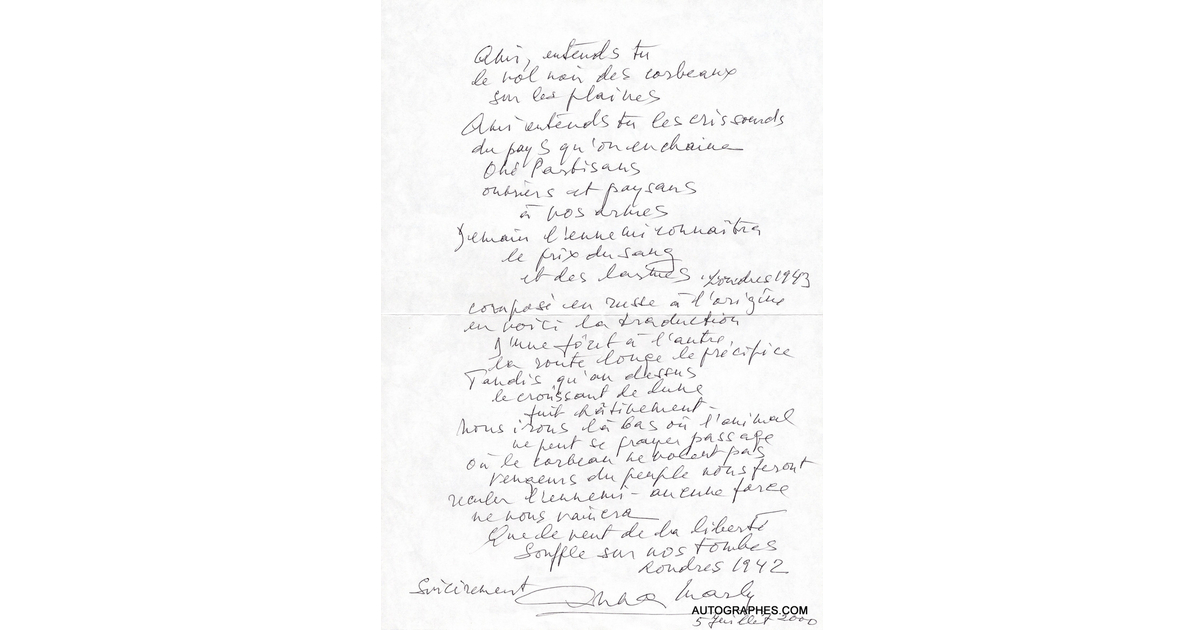 Ami, entends tu
le vol noir des corbeaux
sur les plaines
Ami entends tu les cris sourds
du pays qu'on enchaine
Ohé Partisans
ouvriers et paysans
à vos armes
Demain l'ennemi connaîtra
le prix du sang
et des larmes. Londres 1943
composé en russe à l'origine
en voici la traduction
D'une forêt à l'autre,
la route longe le précipice
Tandis qu'au dessus
le croissant de lune
fuit hâtivement -
Nous irons là bas où l'animal
ne peut se frayer passage
où le corbeau ne volent pas
vengeurs du peuple nous feront
reculer l'ennemi - aucune force
ne nous vaincra
Que le vent de la liberté
Souffle sur nos tombes
Londres 1942
Sincèrement Anna Marly
AUTOGRAPHES.COM
5 Juillet 2000